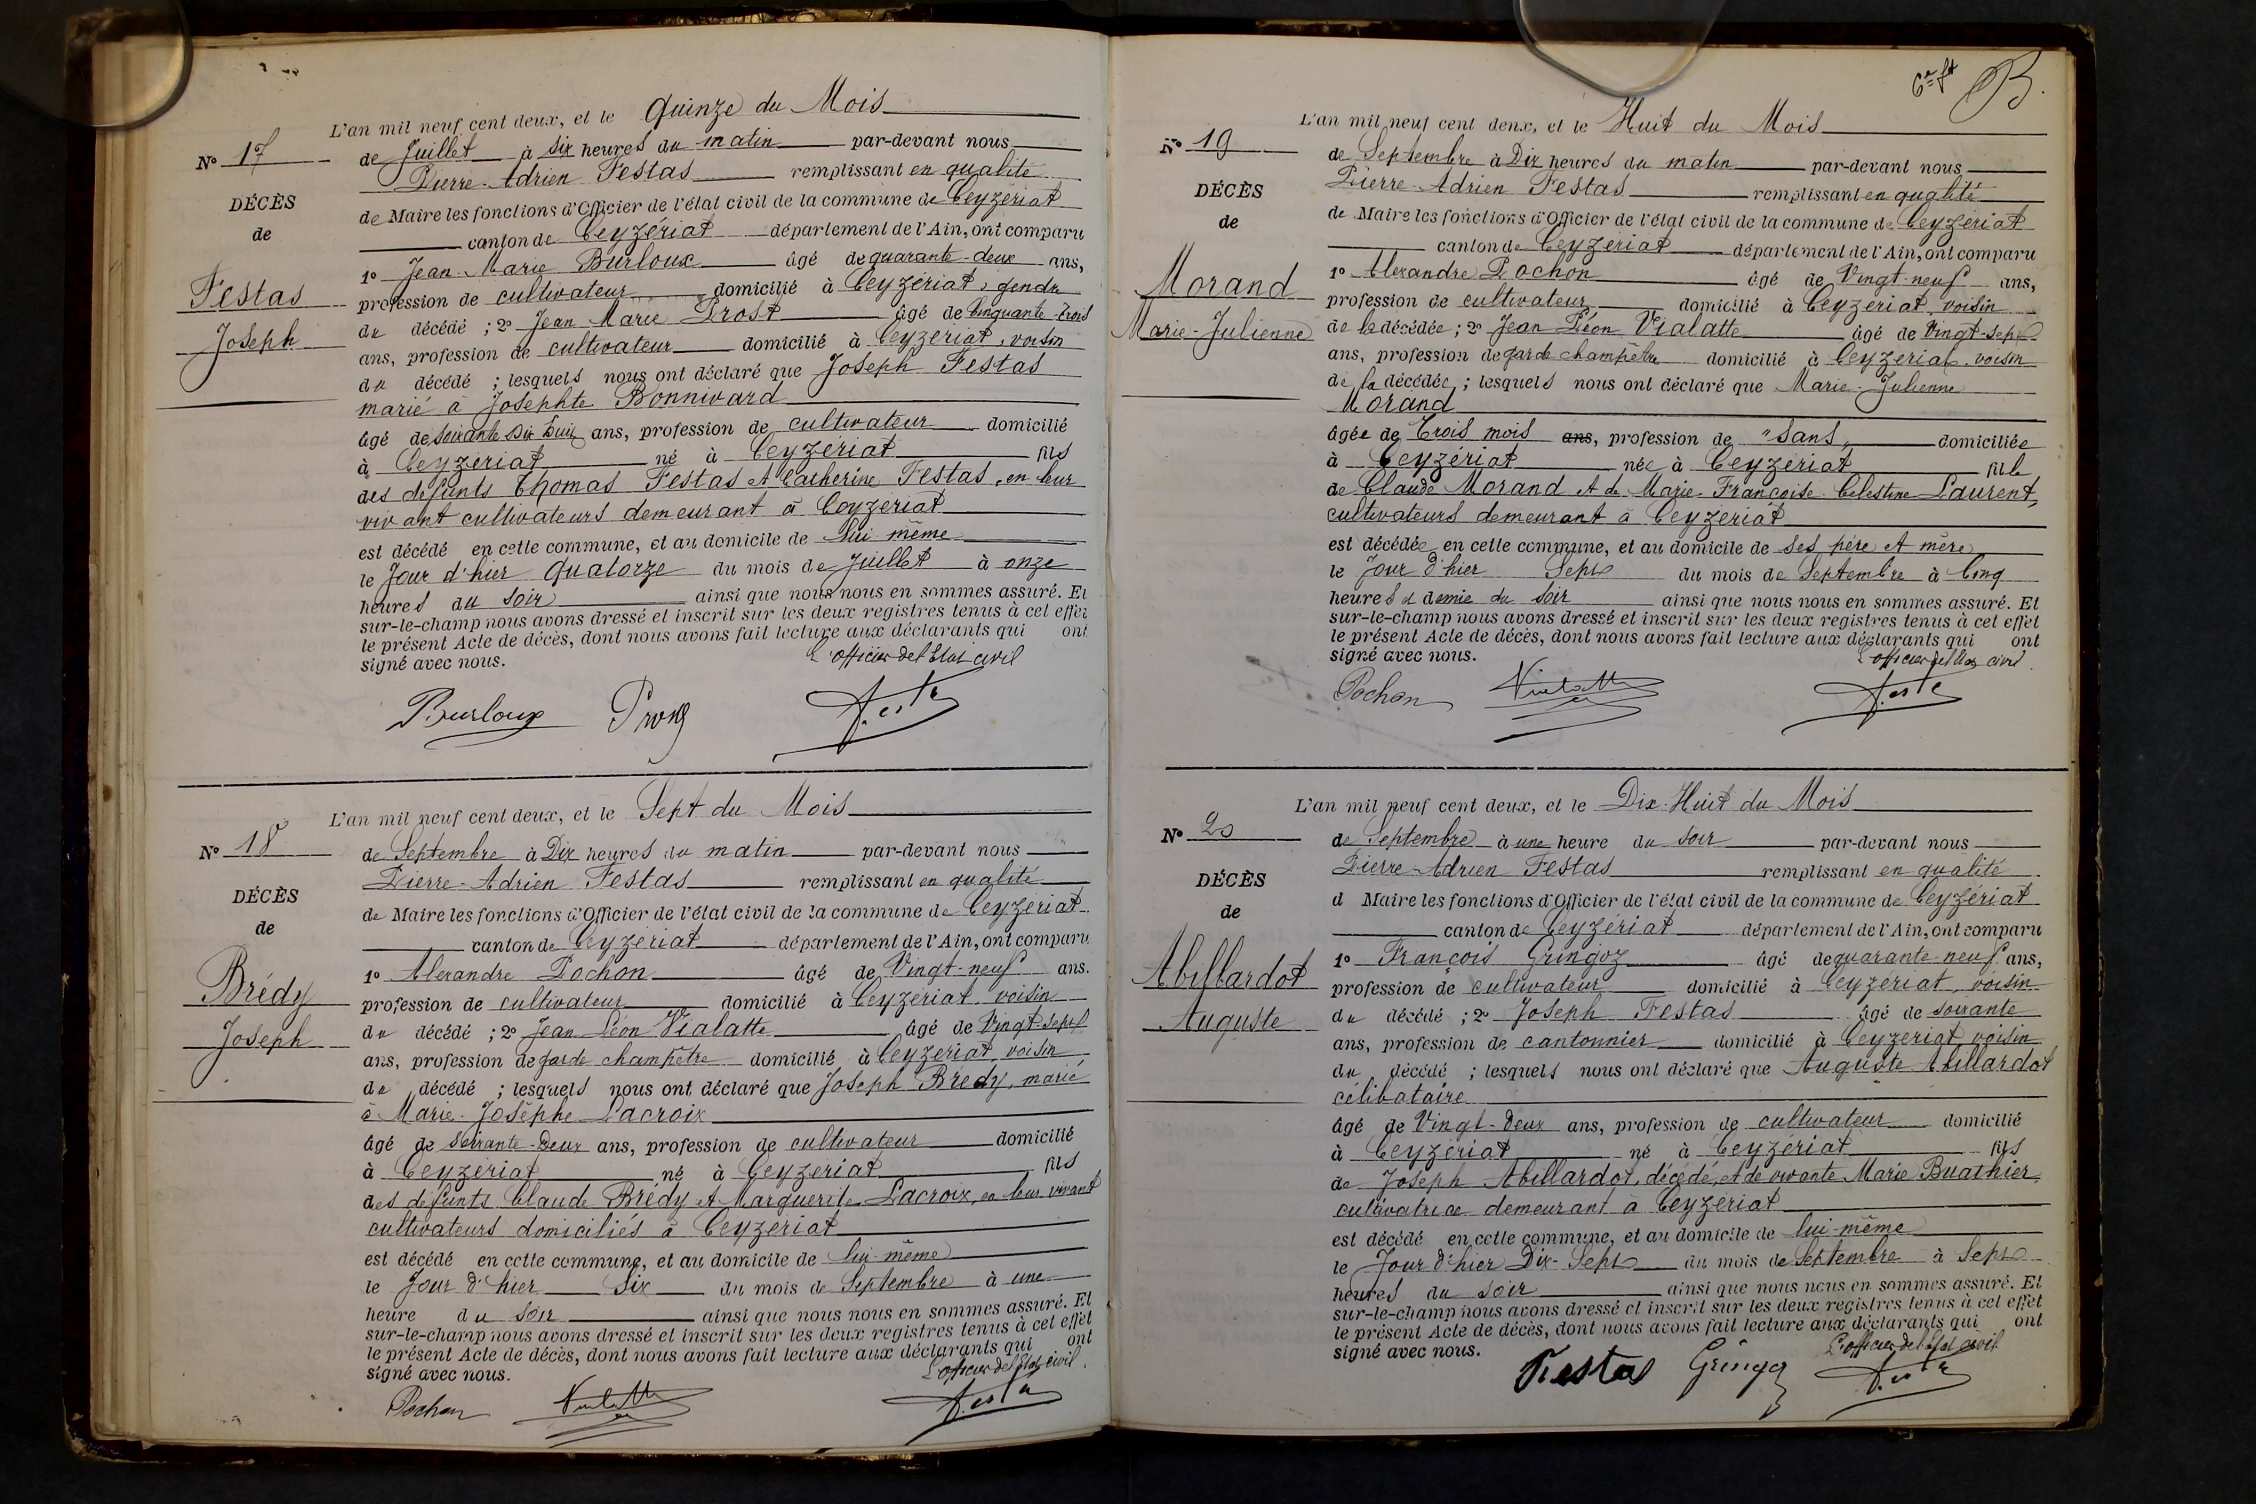 L'an mil neuf cent deux, et le Quinze du Mois
N° 17
de Juillet à six heures du matin par-devant nous
Pierre-Adrien Festas remplissant en qualité
DÉCÈS
de Maire les fonctions d'Officier de l'état civil de la commune de Ceyzériat
de
canton de Ceyzériat département de l'Ain, ont comparu
1° Jean-Marie Burloux âgé de quarante-deux ans,
Festas
profession de cultivateur domicilié à Ceyzériat, gendre
Joseph
du décédé ; 2° Jean Marie Prost âgé de Cinquante-trois
ans, profession de cultivateur domicilié à Ceyzériat, voisin
du décédé ; lesquels nous ont déclaré que Joseph Festas
marié à Josephte Bonnivard
âgé de soixante Dix huit ans, profession de cultivateur domicilié
à Ceyzériat né à Ceyzériat fils
des défunts Thomas Festas et Catherine Festas, en leur
vivant cultivateurs demeurant à Ceyzériat
est décédé en cette commune, et au domicile de lui même
le Jour d'hier quatorze du mois de Juillet à onze
heures du soir ainsi que nous nous en sommes assuré. Et
sur-le-champ nous avons dressé et inscrit sur les deux registres tenus à cet effet
le présent Acte de décès, dont nous avons fait lecture aux déclarants qui ont
signé avec nous.
L'officier de l'Etat civil
Burloux Prost Festas
L'an mil neuf cent deux, et le Sept du Mois
N° 18
de Septembre à Dix heures du matin par-devant nous
Pierre-Adrien Festas remplissant en qualité
DÉCÈS
de Maire les fonctions d'Officier de l'état civil de la commune de Ceyzériat
de
canton de Ceyzériat département de l'Ain, ont comparu
1° Alexandre Pochon âgé de Vingt-neuf ans.
Brédy
profession de cultivateur domicilié à Ceyzériat, voisin
Joseph
du décédé ; 2° Jean Léon Vialatte âgé de Vingt-sept
ans, profession de garde champêtre domicilié à Ceyzériat, voisin
du décédé ; lesquels nous ont déclaré que Joseph Brédy, marié
à Marie-Josèphe Lacroix
âgé de soixante-Deux ans, profession de cultivateur domicilié
à Ceyzériat né à Ceyzériat fils
des défunts Claude Brédy et Marguerite Lacroix, en leur vivant
cultivateurs domiciliés à Ceyzériat
est décédé en cette commune, et au domicile de lui-même
le Jour d'hier Six du mois de Septembre à une
heure du soir ainsi que nous nous en sommes assuré. Et
sur-le-champ nous avons dressé et inscrit sur les deux registres tenus à cet effet
le présent Acte de décès, dont nous avons fait lecture aux déclarants qui ont
signé avec nous.
L'officier de l'Etat civil.
Pochon Vialatte Festas
6e ft B.
L'an mil neuf cent deux, et le Huit du Mois
N° 19
de Septembre à Dix heures du matin par-devant nous
Pierre-Adrien Festas remplissant en qualité
DÉCÈS
de Maire les fonctions d'Officier de l'état civil de la commune de Ceyzériat
de
canton de Ceyzériat département de l'Ain, ont comparu
1° Alexandre Pochon âgé de Vingt-neuf ans,
Morand
profession de cultivateur domicilié à Ceyzériat, voisin
Marie-Julienne
de la décédée ; 2° Jean Léon Vialatte âgé de Vingt-sept
ans, profession de garde champêtre domicilié à Ceyzériat, voisin
de la décédée ; lesquels nous ont déclaré que Marie-Julienne
Morand
âgée de Trois mois ans, profession de "sans" domiciliée
à Ceyzériat née à Ceyzériat fille
de Claude Morand et de Marie-Françoise-Célestine Laurent,
cultivateurs demeurant à Ceyzériat
est décédée en cette commune, et au domicile de ses père et mère
le Jour d'hier Sept du mois de Septembre à Cinq
heures et demie du soir ainsi que nous nous en sommes assuré. Et
sur-le-champ nous avons dressé et inscrit sur les deux registres tenus à cet effet
le présent Acte de décès, dont nous avons fait lecture aux déclarants qui ont
signé avec nous.
L'officier de l'Etat civil.
Pochon Vialatte Festas
L'an mil neuf cent deux, et le Dix-Huit du Mois
N° 20
de Septembre à une heure du soir par-devant nous
Pierre-Adrien Festas remplissant en qualité
DÉCÈS
d Maire les fonctions d'Officier de l'état civil de la commune de Ceyzériat
de
canton de Ceyzériat département de l'Ain, ont comparu
1° François Gringoz âgé de quarante-neuf ans,
Abillardot
profession de cultivateur domicilié à Ceyzériat, voisin
Auguste
du décédé ; 2° Joseph Festas âgé de soixante
ans, profession de cantonnier domicilié à Ceyzériat, voisin
du décédé ; lesquels nous ont déclaré que Auguste Abillardot
célibataire
âgé de Vingt-Deux ans, profession de cultivateur domicilié
à Ceyzériat né à Ceyzériat fils
de Joseph Abillardot, décédé, et de vivante Marie Buathier,
cultivatrice demeurant à Ceyzériat
est décédé en cette commune, et au domicile de lui-même
le Jour d'hier Dix-Sept du mois de Septembre à Sept
heures du soir ainsi que nous nous en sommes assuré. Et
sur-le-champ nous avons dressé et inscrit sur les deux registres tenus à cet effet
le présent Acte de décès, dont nous avons fait lecture aux déclarants qui ont
signé avec nous.
L'officier de l'Etat civil
Festas Gringoz Festas